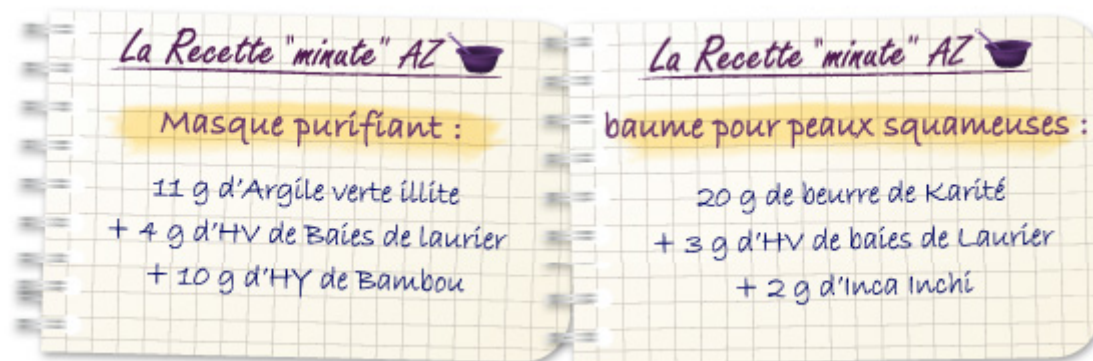 La Recette "minute" AZ
Masque purifiant :
11 g d'Argile verte illite
+ 4 g d'HV de Baies de laurier
+ 10 g d'HY de Bambou
La Recette "minute" AZ
baume pour peaux squameuses :
20 g de beurre de Karité
+ 3 g d'HV de baies de Laurier
+ 2 g d'Inca Inchi